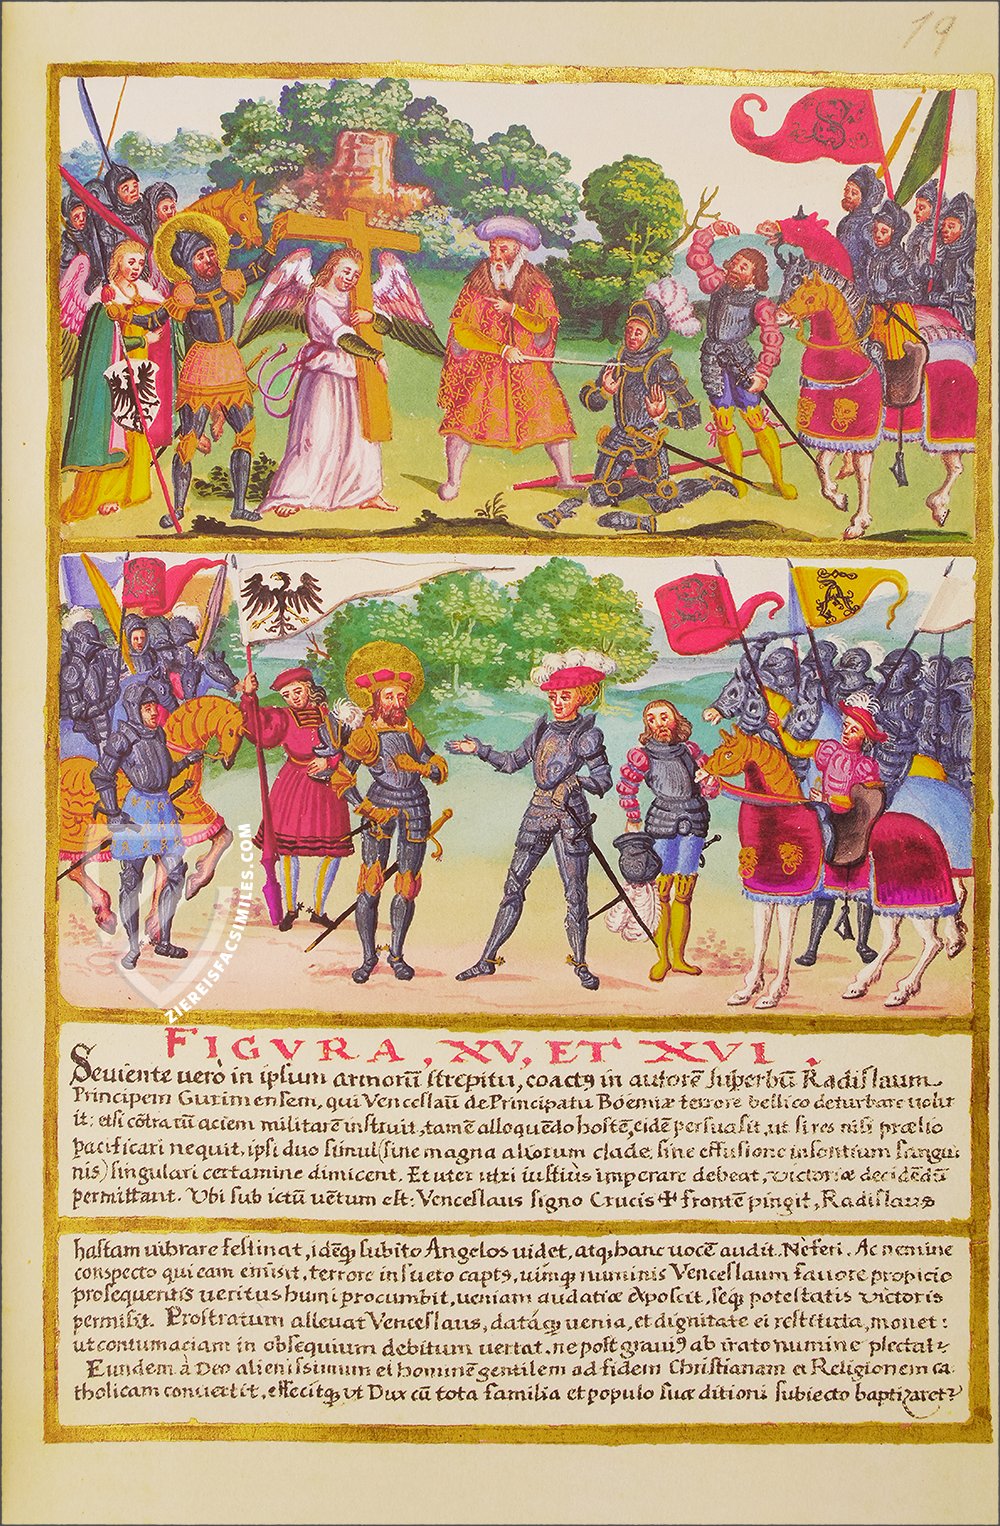 19
S
S
A
ZIEREISFACSIMILES.COM
FIGVRA, XV, ET XVI.
Seviente verò in ipsium armorũ strepitu, coactꝰ in autorem superbũ Radislaum
Principem Gurimensem, qui Venceslaũ de Principatu Boemiæ terrore bellico deturbare volu
it: etsi cõtra eũ aciem militarẽ instruit, tamẽ alloquẽdo hostẽ, eidẽ persuasit, ut si res nisi prælio
pacificari nequit, ipsi duo simul (sine magna aliorum clade, sine effusione insontium sangui
nis) singulari certamine dimicent. Et uter utri iustius imperare debeat, victoriæ decidẽdũ
permittant. Vbi sub ictũ vẽtum est: Venceslaus signo Crucis ✝ frontẽ pingit, Radislaus
hastam vibrare festinat, idẽq; subito Angelos videt, atq; hanc vocẽ audit. Ne feri. Ac nemine
conspecto qui eam emisit, terrore insueto captꝰ, vimq; numinis Venceslaum favore propicio
prosequentis veritus humi procumbit, veniam audatiæ exposcit, seq; potestatis victoris
permisit. Prostratum allevat Venceslaus, datáq; venia, et dignitate ei restituta, monet:
ut contumaciam in obsequium debitum vertat. ne post graviꝰ ab irato numine plectatr
Eundem à Deo alienissimum et hominẽ gentilem ad fidem Christianam et Religionem ca
tholicam convertit, effecitq; vt Dux cũ tota familia et populo suæ ditioni subiecto baptizaretr